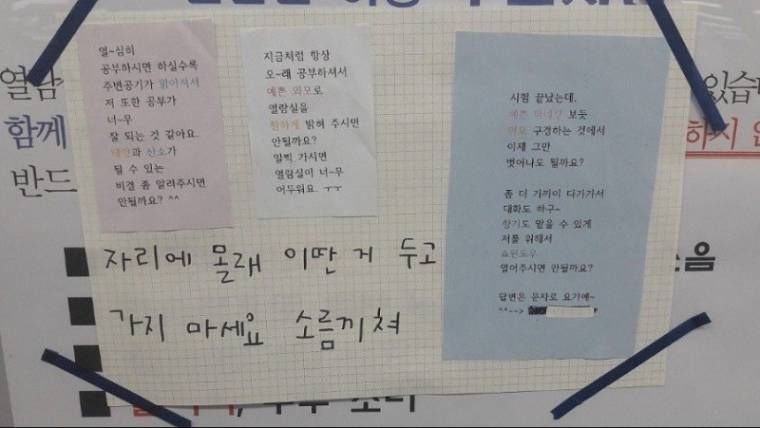 열~심히
공부하시면 하실수록
주변공기가 맑아져서
저 또한 공부가
너~무
잘 되는 것 같아요.
태양과 산소가
될 수 있는
비결 좀 알려주시면
안될까요? ^^
지금처럼 항상
오~래 공부하셔서
예쁜 외모로
열람실을
환하게 밝혀 주시면
안될까요?
일찍 가시면
열람실이 너~무
어두워요. ㅜㅜ
시험 끝났는데,
예쁜 보듯
구경하는 것에서
이제 그만
벗어나도 될까요?
좀 더 가까이 다가가서
대화도 하구~
향기도 맡을 수 있게
저를 위해서
쇼윈도우
열어주시면 안될까요?
답변은 문자로 요기에~
^^-->
자리에 몰래 이딴 거 두고
가지 마세요 소름끼쳐
열람
있습
함께
하지 않
반드
소음
소리